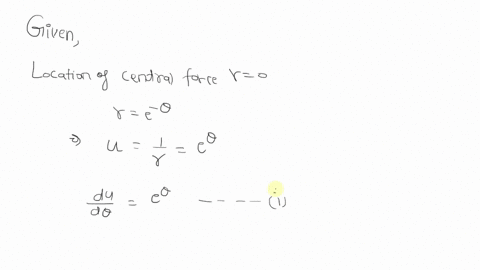 Given,
Location of central force r=0
r = e^{-θ}
⇒ u = 1/r = e^θ
du/dθ = e^θ ---- (i)